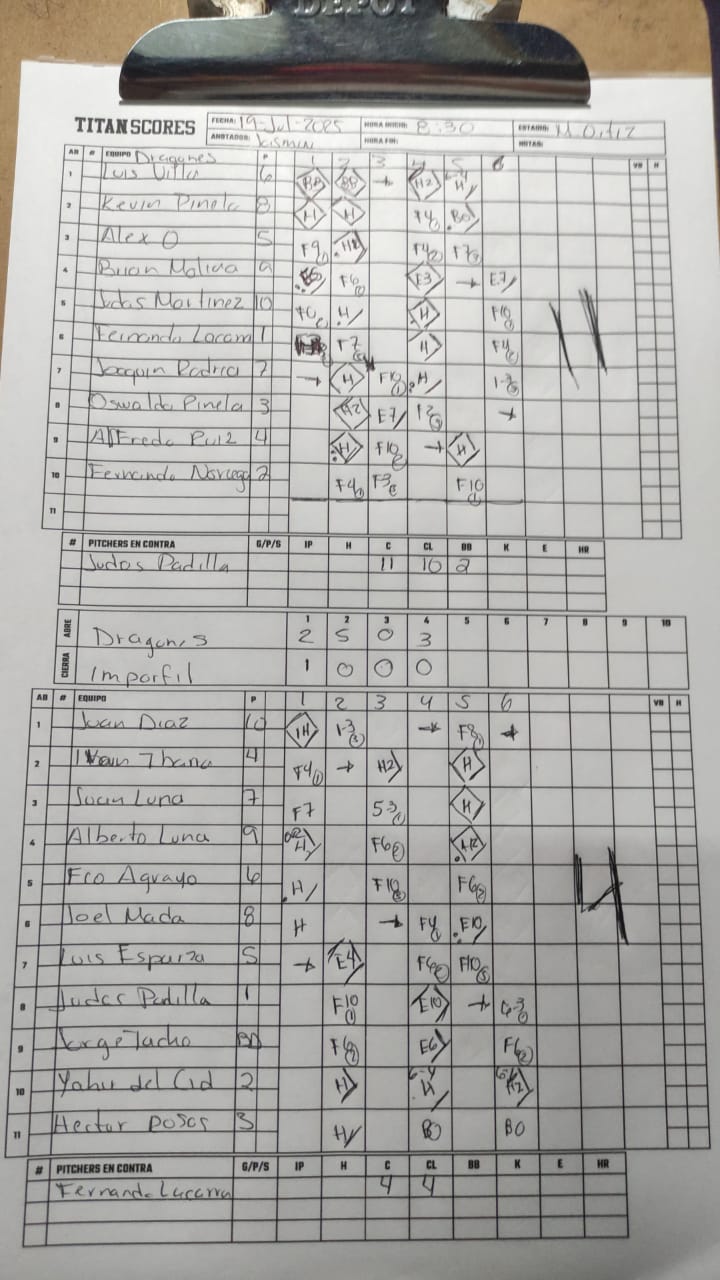 DEPOT
TITAN SCORES FECHA: 19-Jul-2025 HORA INICIO: 8:30 ESTADIO: M. Ortiz
ANOTADOR: Jasmin HORA FIN: NOTAS:
AB # EQUIPO Dragones P 1 2 3 4 5 6 VB H
1 Luis Villa 6 BB BB → H2 6-4 H
2 Kevin Pinela 8 H H F4 BO
3 Alex O 5 F9 1 H2 F4 2 F7
4 Brian Molina 9 F6 F3 → E7
5 Judas Martinez 10 H H F10 1
6 Fernando Lacarra 1 F7 H F4 2
7 Joaquin Rodrig 7 → H F10 1 H 1-3
8 Oswaldo Pinela 3 H2 E7 →
9 Alfredo Ruiz 4 H F10 2 → H
10 Fernando Noriega 2 F4 F3 F10 1
11
11
# PITCHERS EN CONTRA G/P/S IP H C CL BB K E HR
Judas Padilla 11 10 2
1 2 3 4 5 6 7 8 9 10
ABRE Dragones 2 5 0 3
CIERRA Imparfil 1 0 0 0
AB # EQUIPO P 1 2 3 4 5 6 VB H
1 Juan Diaz 10 1H 1-3 3 → F8 1 →
2 Ivan Thana 4 F4 1 → H2 H
3 Juan Luna 7 F7 5-3 1 H
4 Alberto Luna 9 H F6 2
5 Fco Aguayo 6 H F10 F6 2
6 Joel Mada 8 H → F4 1 E10
7 Luis Esparza 5 → E4 F6 2 F10 3
8 Judas Padilla 1 F10 1 E10 → 6-3 1
9 Jorge Tacho BD F6 2 E6 F6 2
10 Yahir del Cid 2 H 6-4 H 6-4 H2
11 Hector Posos 3 H BO BO
4
# PITCHERS EN CONTRA G/P/S IP H C CL BB K E HR
Fernando Lacarra 4 4